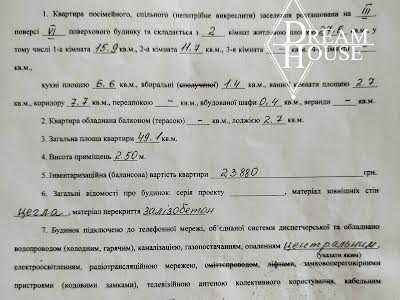 DREAM
HOUSE
1. Квартира посімейного, спільного (непотрібне викреслити) заселення розташована на III
поверсі VI поверхового будинку та складається з 2 кімнат житловою площею
тому числі 1-а кімната 15.9 кв.м., 2-а кімната 11.7 кв.м., 3-я кімната
кв.м.,
кухні площею 6.6 кв.м., вбиральні (сполученої) 1.4 кв.м., ванної кімнати площею 2.7
кв.м., коридору 7.7 кв.м., передпокою – кв.м., вбудованої шафи 0.4 кв.м., веранди – кв.м.
2. Квартира обладнана балконом (терасою) – кв.м., лоджією 2.7 кв.м.
3. Загальна площа квартири 49.1 кв.м.
4. Висота приміщень 2.50 м.
5. Інвентаризаційна (балансова) вартість квартири 23880 грн.
6. Загальні відомості про будинок: серія проекту , матеріал зовнішніх стін
цегла, матеріал перекриття залізобетон
7. Будинок підключено до телефонної мережі, об'єднаної системи диспетчерської та обладнано
водопроводом (холодним, гарячим), каналізацією, газопостачанням, опаленням центральним,
(указати яким)
електроосвітленням, радіотрансляційною мережею, сміттєпроводом, ліфтами, замковопереговорними
пристроями (кодовими замками), телевізійною антеною колективного користування, кабельним